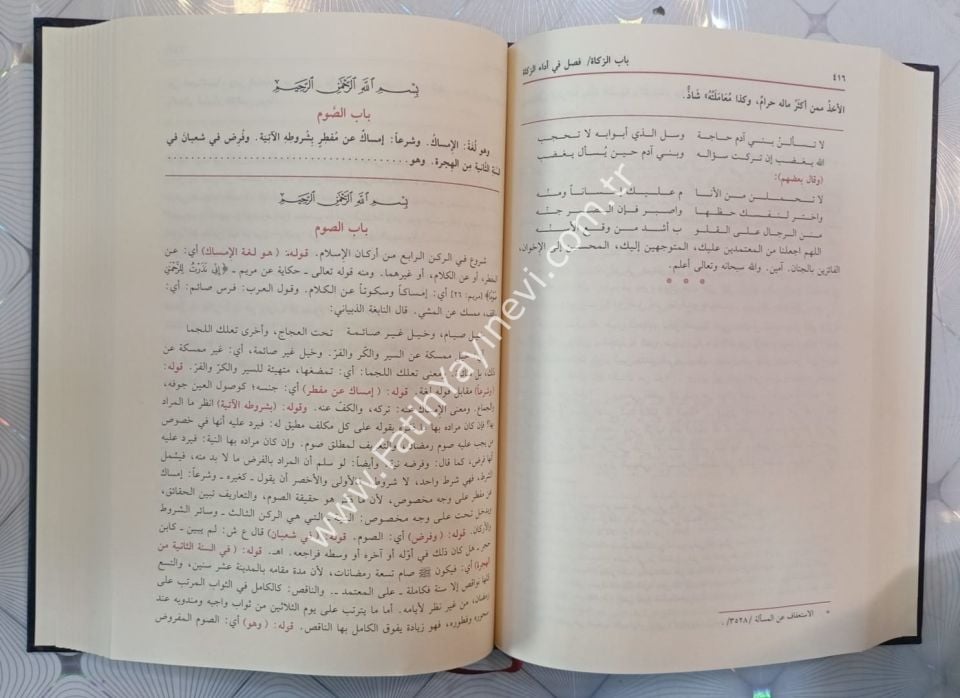 ٤١٦
باب الزكاة/ فصل في أداء الزكاة
الأخذُ ممن أكثرُ ماله حرامٌ، وكذا مُعَامَلَتُهُ» شَاذٌّ.
لا تسألنَّ بني آدم حاجة وسل الذي أبوابه لا تحجب
الله يغضب إن تركت سؤاله وبني آدم حين يُسأل يغضب
(وقال بعضهم):
لا تحملن من الأنا م عليك إحساناً ومنّه
واختر لنفسك حظها واصبر فإن الصبر جنّه
منن الرجال على القلو ب أشد من وقع الأسنّه
اللهم اجعلنا من المعتمدين عليك، المتوجهين إليك، المحسنين إلى الإخوان،
الفائزين بالجنان. آمين. والله سبحانه وتعالى أعلم.
* الاستعفاف عن المسألة /٣٥٢٨/.
بِسْمِ اللَّهِ الرَّحْمَنِ الرَّحِيمِ
باب الصَّوم
وهو لُغَةً: الإمساكُ. وشرعاً: إمساكٌ عن مُفطِرٍ بِشُروطِهِ الآتية. وفُرض في شعبانَ في
السنة الثَّانية مِن الهجرة. وهو
بِسْمِ اللَّهِ الرَّحْمَنِ الرَّحِيمِ
باب الصوم
شروع في الركن الرابع من أركان الإسلام. قوله: (هو لغة الإمساك) أي: عن
المفطر، أو عن الكلام، أو غيرهما. ومنه قوله تعالى ـ حكاية عن مريم ـ ﴿إِنِّي نَذَرْتُ لِلرَّحْمَنِ
صَوْمًا﴾ [مريم: ٢٦] أي: إمساكاً وسكوتاً عن الكلام. وقول العرب: فرس صائم: أي:
واقف، ممسك عن المشي. قال النابغة الذبياني:
خيل صيام، وخيل غير صائمة تحت العجاج، وأخرى تعلك اللجما
أي: خيل ممسكة عن السير والكر والفرّ. وخيل غير صائمة، أي: غير ممسكة عن
ذلك، بل سائرة. ومعنى تعلك اللجما: أي: تمضغها، متهيئة للسير والكرّ والفرّ. قوله:
(وشرعاً) مقابل قوله لغة. قوله: (إمساك عن مفطر) أي: جنسه؛ كوصول العين جوفه،
والجماع. ومعنى الإمساك عنه: تركه، والكفّ عنه. وقوله: (بشروطه الآتية) انظر ما المراد
بها؟ فإن كان مراده بها ما ذكره بقوله على كل مكلف مطيق له: فيرد عليه أنها في خصوص
من يجب عليه صوم رمضان، والتعريف لمطلق صوم. وإن كان مراده بها النية: فيرد عليه
أنها فرض، كما قال: وفرضه نيّة. وأيضاً: لو سلم أن المراد بالفرض ما لا بد منه، فيشمل
الشرط، فهي شرط واحد، لا شروط. فالأولى والأخصر أن يقول ـ كغيره ـ وشرعاً: إمساك
عن مفطر على وجه مخصوص، لأن ما ذكر هو حقيقة الصوم، والتعاريف تبين الحقائق،
ويدخل تحت على وجه مخصوص: النية، التي هي الركن الثالث ـ وسائر الشروط
والأركان. قوله: (وفرض) أي: الصوم. قوله: (في شعبان) قال ع ش: لم يبين ـ كابن
حجر ـ هل كان ذلك في أوّله أو آخره أو وسطه فراجعه. اهـ. قوله: (في السنة الثانية من
الهجرة) أي: فيكون ﷺ صام تسعة رمضانات، لأن مدة مقامه بالمدينة عشر سنين، والتسع
كلها نواقص إلا سنة فكاملة ـ على المعتمد ـ. والناقص: كالكامل في الثواب المرتب على
رمضان، من غير نظر لأيامه. أما ما يترتب على يوم الثلاثين من ثواب واجبه ومندوبه عند
سحوره وفطوره، فهو زيادة يفوق الكامل بها الناقص. قوله: (وهو) أي: الصوم المفروض
www.FatihYayinevi.com.tr